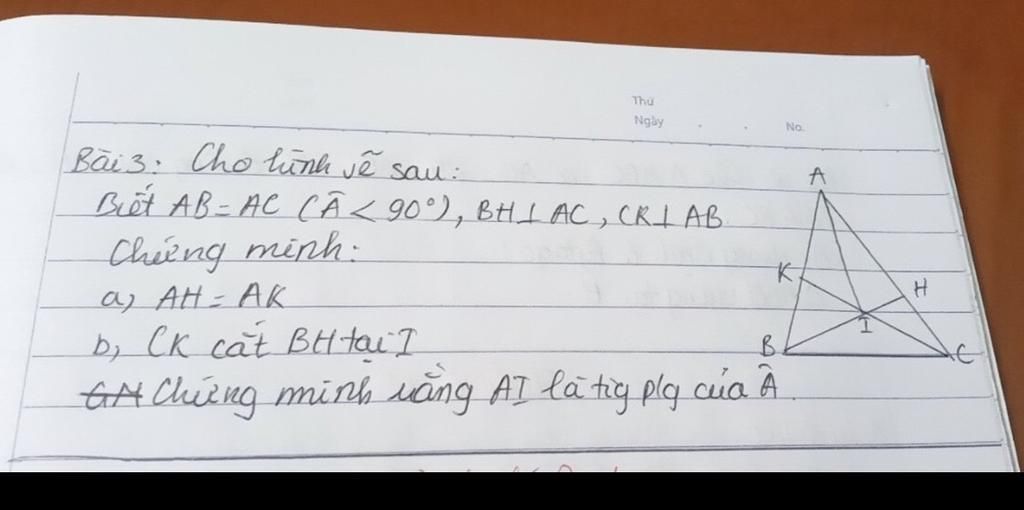 Thứ
Ngày . . No.
Bài 3: Cho hình vẽ sau:
Biết AB = AC (Â < 90°), BH ⊥ AC, CK ⊥ AB
Chứng minh:
a, AH = AK
b, CK cắt BH tại I
Chứng minh rằng AI là tig plg của Â.
A
K
H
I
B
C